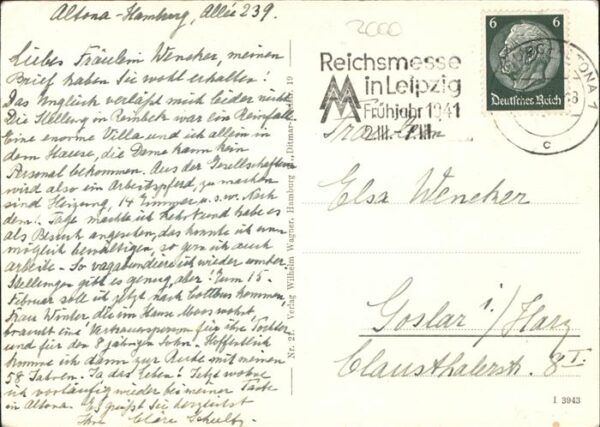 Altona-Hamburg, Allée 239.
Liebes Fräulein Wencker, meinen
Brief haben Sie wohl erhalten!
Das Unglück verläßt mich leider nicht
Die Stellung in Reinbek war ein Reinfall.
Eine enorme Villa und ich allein in
dem Hause, die Dame kann kein
Personal bekommen. Aus der Gesellschafterin
wird also ein Arbeitspferd, zu machen
sind Heizung, 14 Zimmer u.s.w. Nach
dem 1. Tage machte ich Kehrt und habe es
als Besuch angesehen, das konnte ich un
möglich bewältigen, so gern ich auch
arbeite. So vagabundiere ich wieder umher.
Stellungen gibt es genug, aber! Zum 15.
Februar soll ich jetzt nach Cottbus kommen,
Frau Winter die im Hause Moos wohnt,
braucht eine Vertrauensperson für ihre Tochter
und für den 8 jährigen Sohn. Hoffentlich
komme ich dann zur Ruhe mit meinen
58 Jahren. Ja das Leben! Jetzt wohne
ich vorläufig wieder bei meiner Tante
in Altona. Es grüßt Sie herzlichst
Ihre Cläre Schultz.
Verlag Wilhelm Wagner, Hamburg
2000
Reichsmesse
in Leipzig
Frühjahr 1941
2.III.-7.III.
6 6
Deutsches Reich
ALTONA 1
c
Elsa Wencker
Goslar i/Harz
Clausthalerstr. 8 I
I 3943